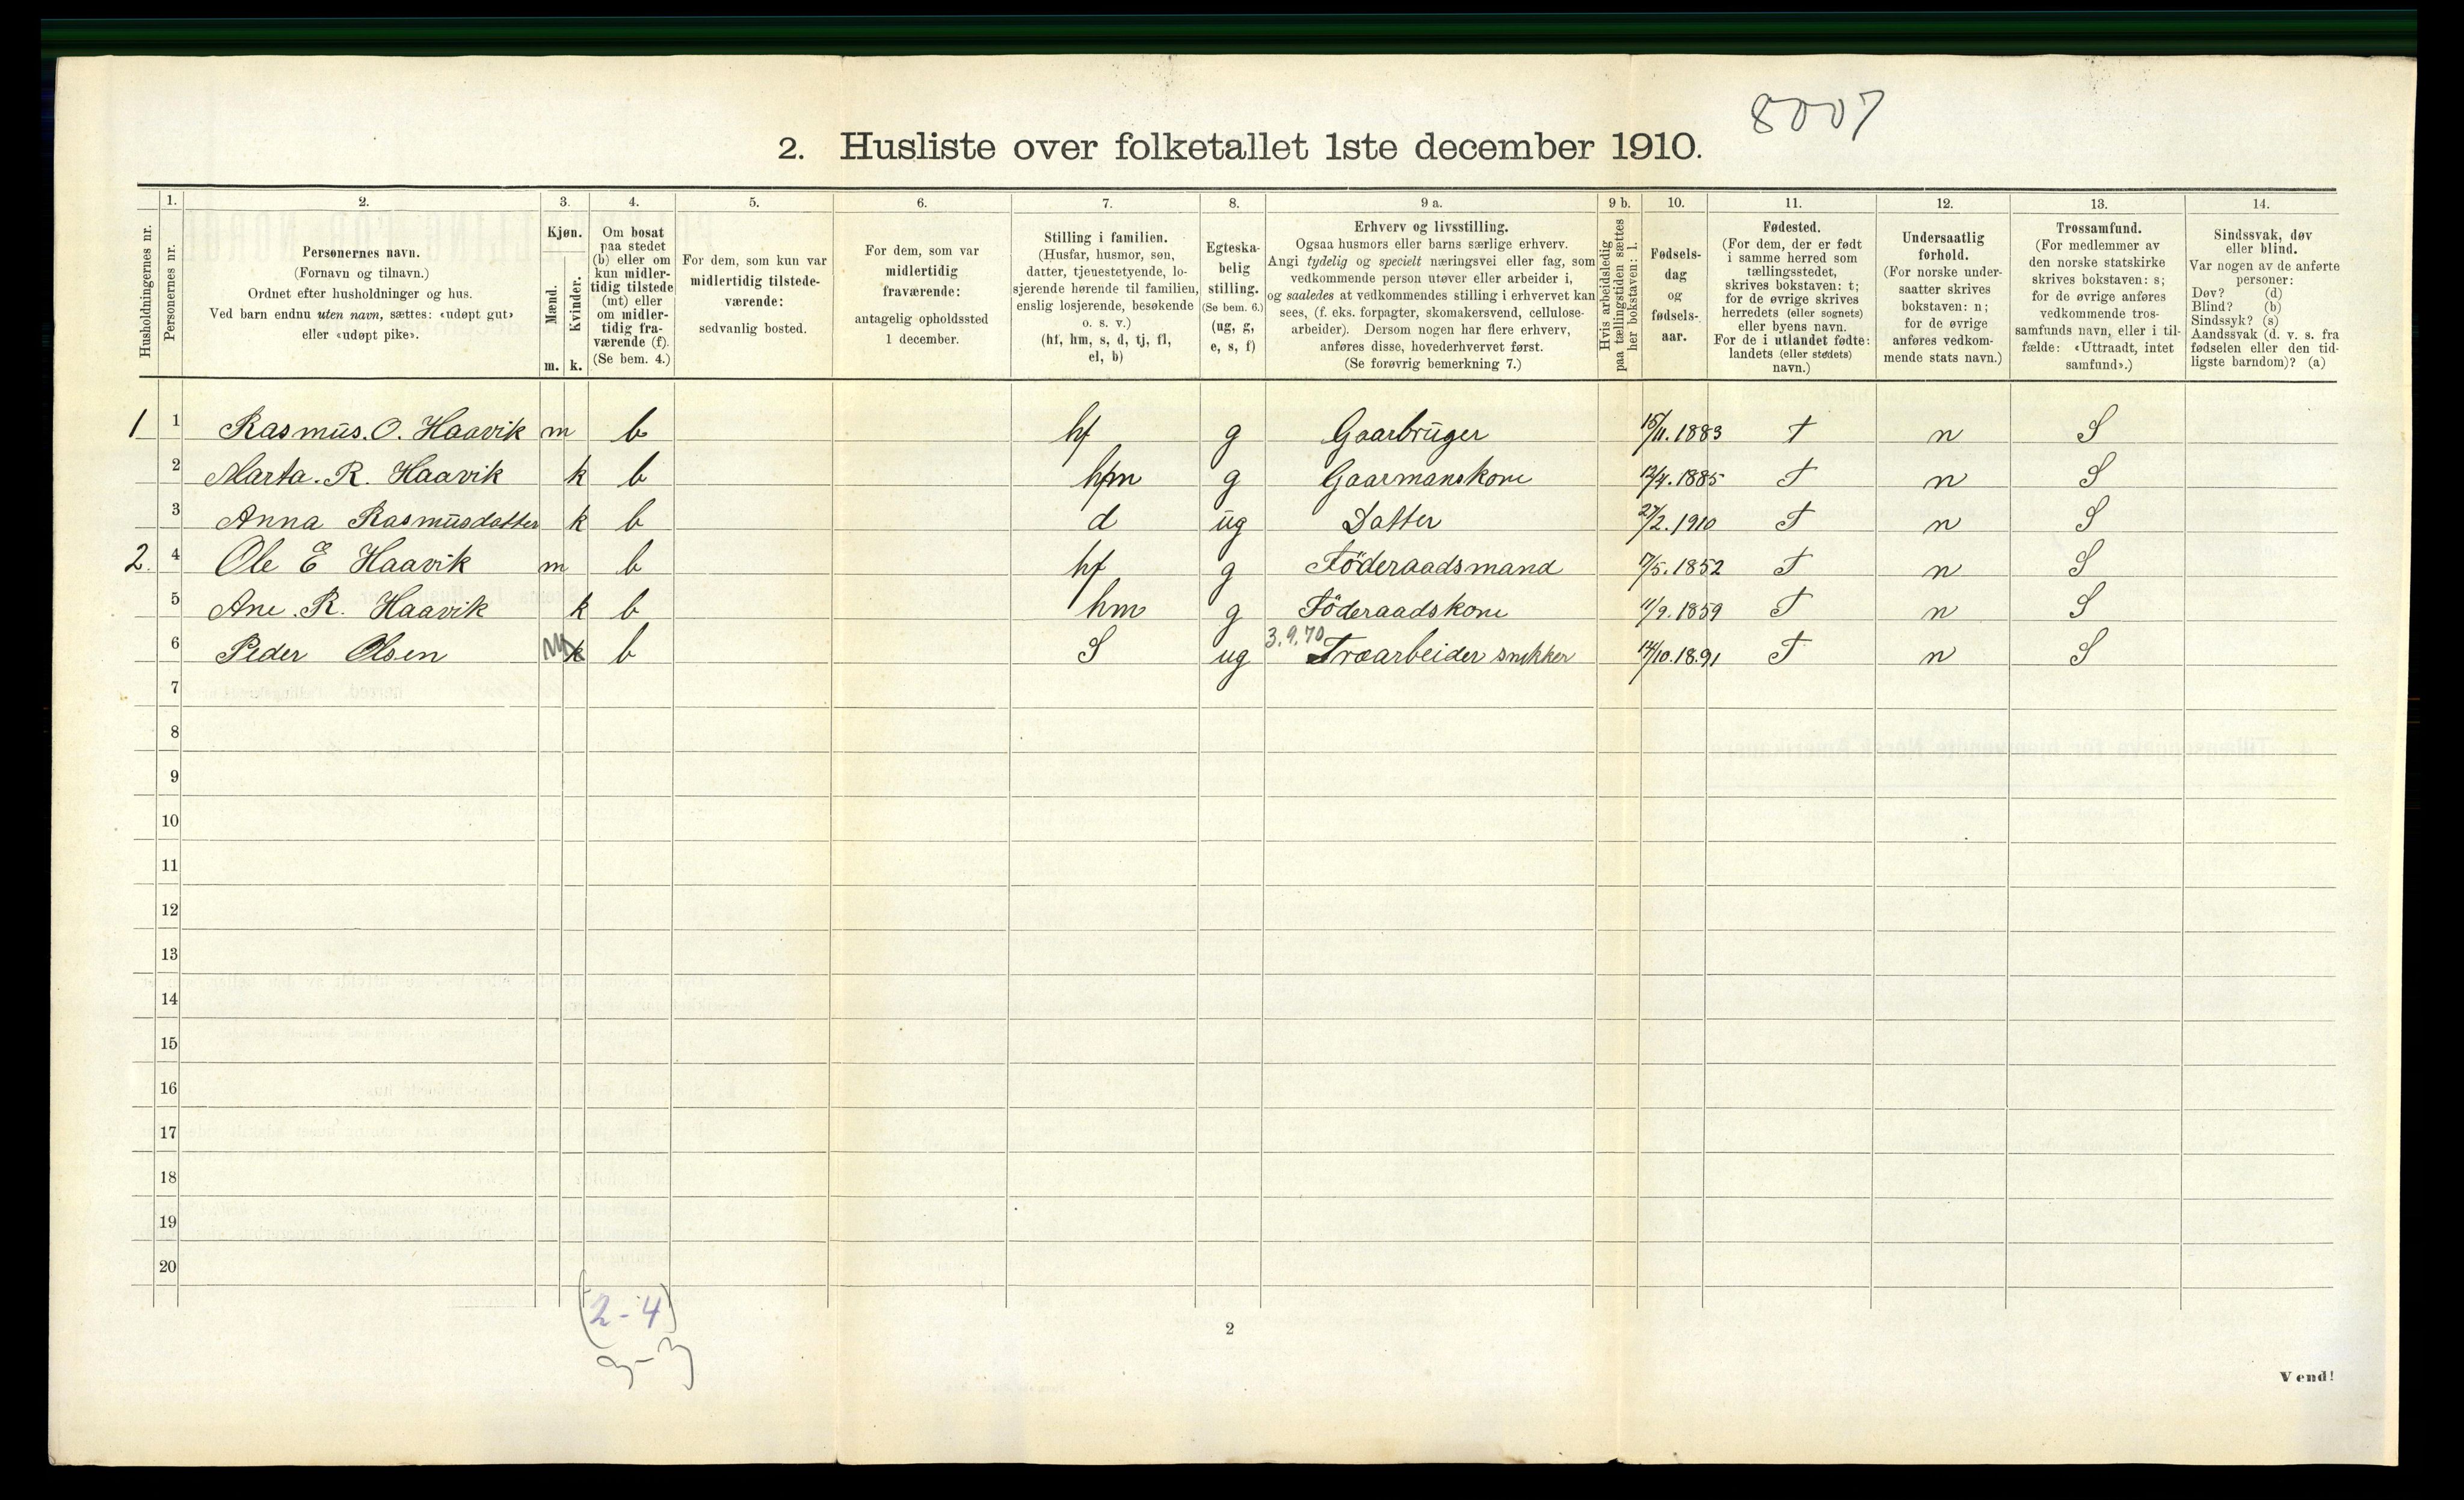 8007
2. Husliste over folketallet 1ste december 1910.
Husholdningernes nr.
1. Personernes nr.
2. Personernes navn.
(Fornavn og tilnavn.)
Ordnet efter husholdninger og hus.
Ved barn endnu uten navn, sættes: «udøpt gut»
eller «udøpt pike».
3. Kjøn.
Mænd. Kvinder.
m. k.
4. Om bosat
paa stedet
(b) eller om
kun midler-
tidig tilstede
(mt) eller
om midler-
tidig fra-
værende (f).
(Se bem. 4.)
5. For dem, som kun var
midlertidig tilstede-
værende:
sedvanlig bosted.
6. For dem, som var
midlertidig
fraværende:
antagelig opholdssted
1 december.
7. Stilling i familien.
(Husfar, husmor, søn,
datter, tjenestetyende, lo-
sjerende hørende til familien,
enslig losjerende, besøkende
o. s. v.)
(hf, hm, s, d, tj, fl,
el, b)
8. Egteska-
belig
stilling.
(Se bem. 6.)
(ug, g,
e, s, f)
9 a. Erhverv og livsstilling.
Ogsaa husmors eller barns særlige erhverv.
Angi tydelig og specielt næringsvei eller fag, som
vedkommende person utøver eller arbeider i,
og saaledes at vedkommendes stilling i erhvervet kan
sees, (f. eks. forpagter, skomakersvend, cellulose-
arbeider). Dersom nogen har flere erhverv,
anføres disse, hovederhvervet først.
(Se forøvrig bemerkning 7.)
9 b. Hvis arbeidsledig
paa tællingstiden sættes
her bokstaven: l.
10. Fødsels-
dag
og
fødsels-
aar.
11. Fødested.
(For dem, der er født
i samme herred som
tællingsstedet,
skrives bokstaven: t;
for de øvrige skrives
herredets (eller sognets)
eller byens navn.
For de i utlandet fødte:
landets (eller stedets)
navn.)
12. Undersaatlig
forhold.
(For norske under-
saatter skrives
bokstaven: n;
for de øvrige
anføres vedkom-
mende stats navn.)
13. Trossamfund.
(For medlemmer av
den norske statskirke
skrives bokstaven: s;
for de øvrige anføres
vedkommende tros-
samfunds navn, eller i til-
fælde: «Uttraadt, intet
samfund».)
14. Sindssvak, døv
eller blind.
Var nogen av de anførte
personer:
Døv? (d)
Blind? (b)
Sindssyk? (s)
Aandssvak (d. v. s. fra
fødselen eller den tid-
ligste barndom)? (a)
1 1 Rasmus. O. Haavik m b hf g Gaarbruger 15/11. 1883 t n S
2 Marta. R. Haavik k b hm g Gaarmanskone 12/4. 1885 T n S
3 Anna Rasmusdatter k b d ug Datter 27/2. 1910 T n S
2. 4 Ole E Haavik m b hf g Föderaadsmand /5. 1852 T n S
5 Ane. R. Haavik k b hm g Föderaadskone 11/9. 1859 T n S
6 Peder Olsen m k b S ug 3.9.70 Træarbeider snekker 14/10. 1891 T n S
7
8
9
10
11
12
13
14
15
16
17
18
19
20
(2-4)
2
Vend!